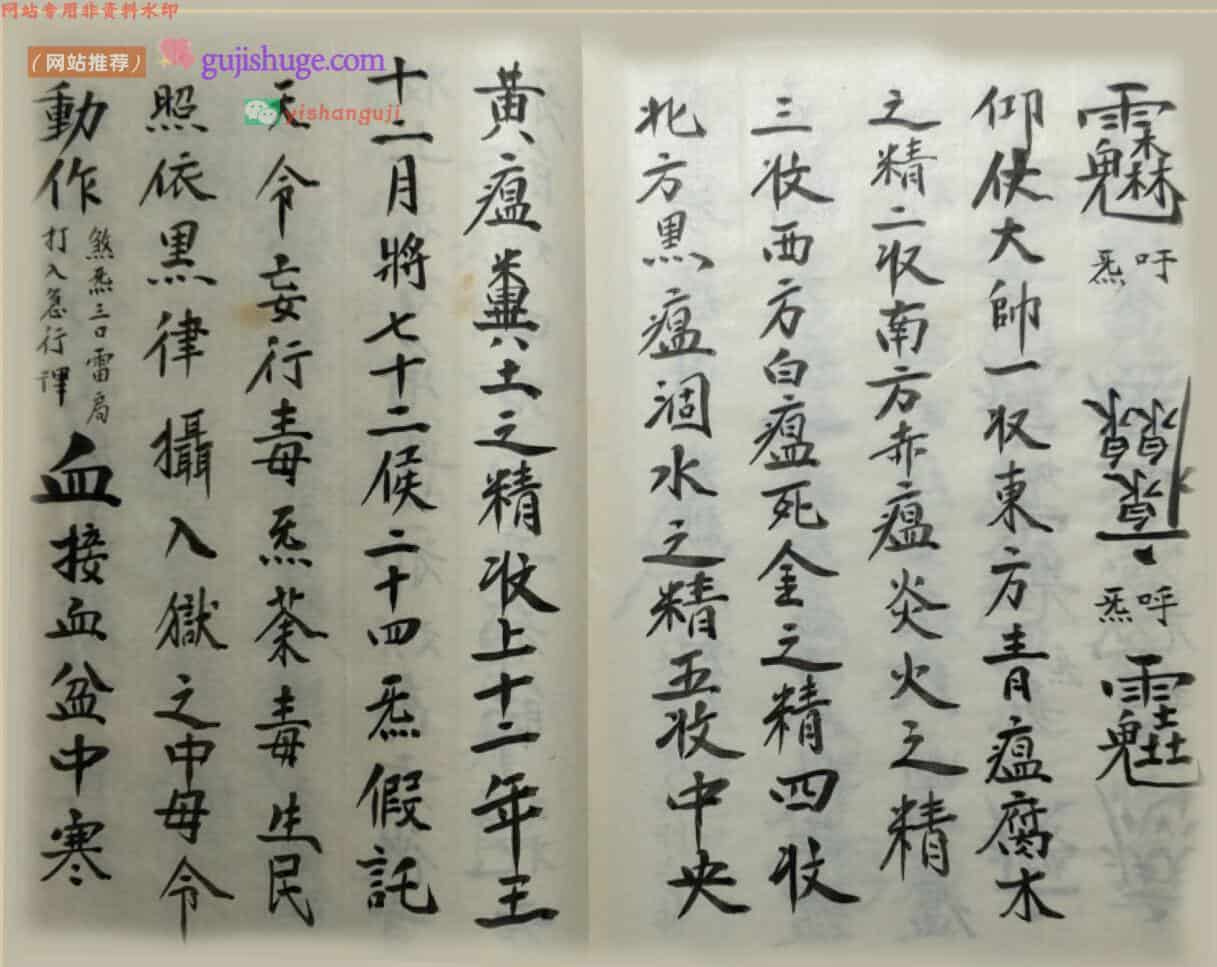 网站专用非资料水印
（网站推荐）
gujishuge.com
yishanguji
吁炁
呼炁
仰仗大帥一收東方青瘟腐木
之精二收南方赤瘟炎火之精
三收西方白瘟死金之精四收
北方黑瘟涸水之精五收中央
黃瘟糞土之精收上十二年王
十二月將七十二候二十四炁假託
天令妄行毒炁荼毒生民
照依黑律攝入獄之中毋令
動作
煞炁三口雷局
打入急行
血接血盆中寒